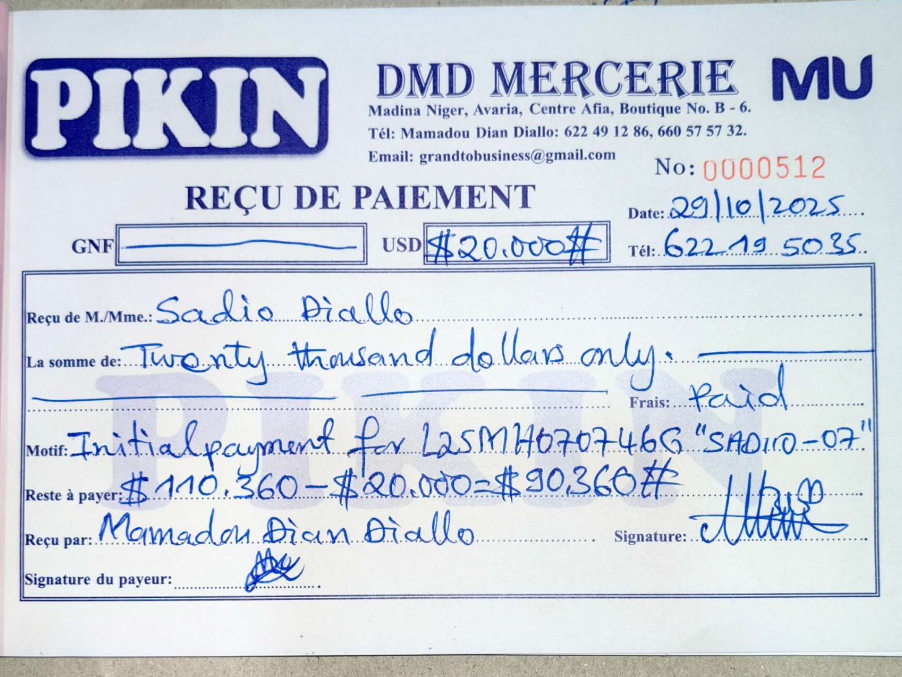 PIKIN
DMD MERCERIE
MU
Madina Niger, Avaria, Centre Afia, Boutique No. B - 6.
Tél: Mamadou Dian Diallo: 622 49 12 86, 660 57 57 32.
Email: grandtobusiness@gmail.com
No: 0000512
REÇU DE PAIEMENT
Date: 29/10/2025
GNF
USD $20.000#
Tél: 622 19 50 35
Reçu de M./Mme.: Sadio Diallo
La somme de: Twenty thousand dollars only.
Frais: Paid
Motif: Initial payment for L25MH070746G "SADIO-07"
Reste à payer: $110.360-$20.000=$90.360#
Reçu par: Mamadou Dian Diallo
Signature:
Signature du payeur:
PIKIN